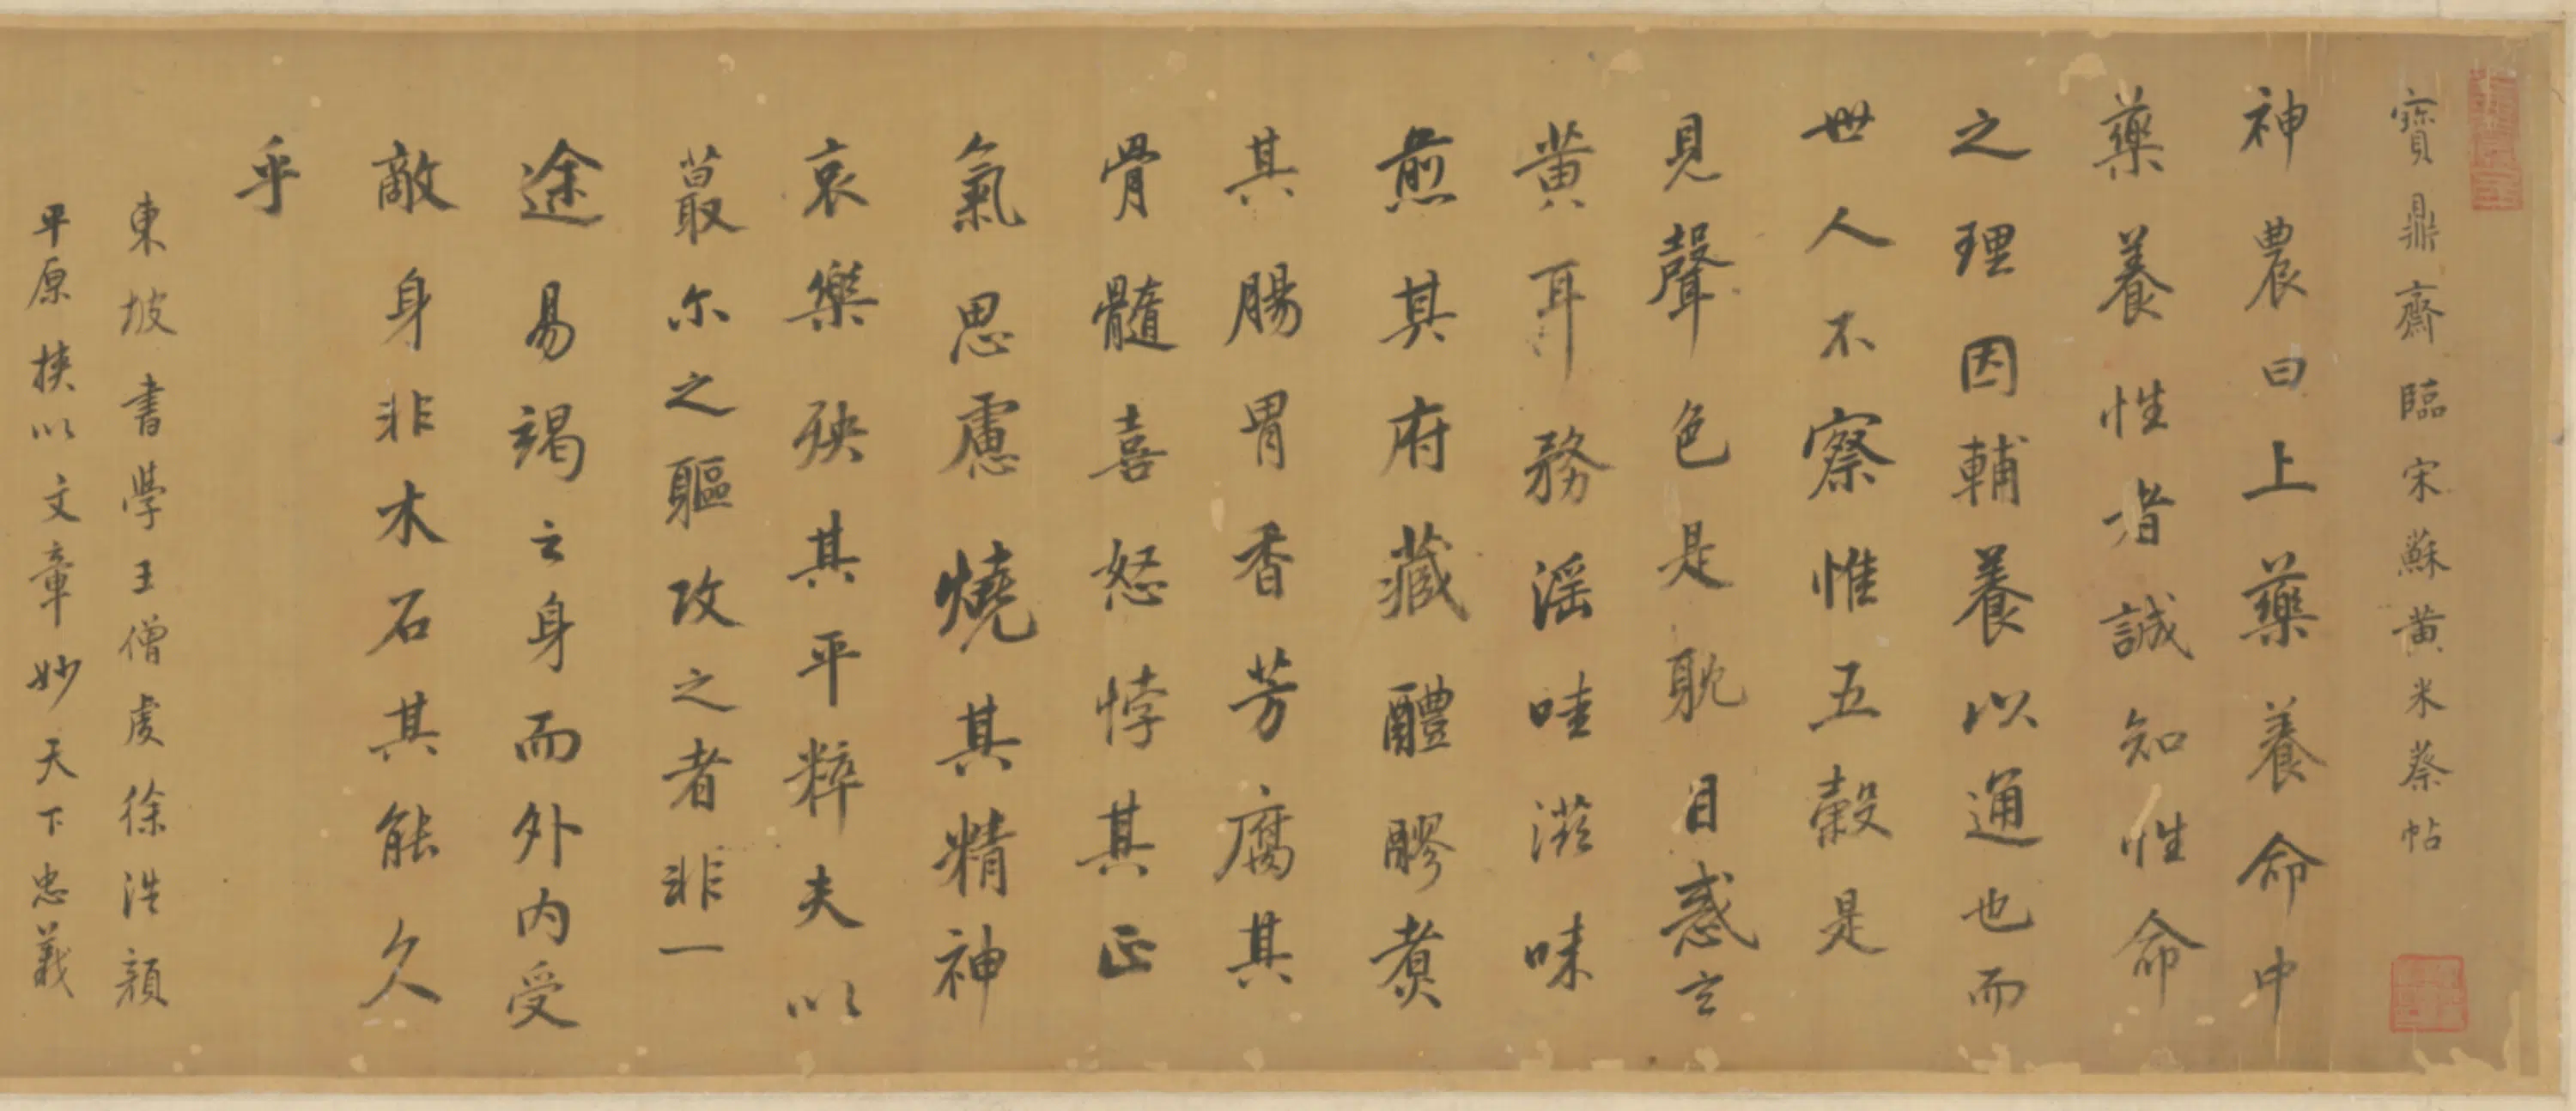 寶鼎齋臨宋蘇黃米蔡帖
神農曰上藥養命中
藥養性者誠知性命
之理因輔養以通也而
世人不察惟五穀是
見聲色是耽目惑玄
黃耳務滛哇滋味
煎其府藏醴醪煑
其腸胃香芳腐其
骨髓喜怒悖其正
氣思慮燒其精神
哀樂殃其平粹夫以
蕞尔之軀攻之者非一
途易竭之身而外內受
敵身非木石其能久
乎
東坡書學王僧虔徐浩顏
平原挾以文章妙天下忠義